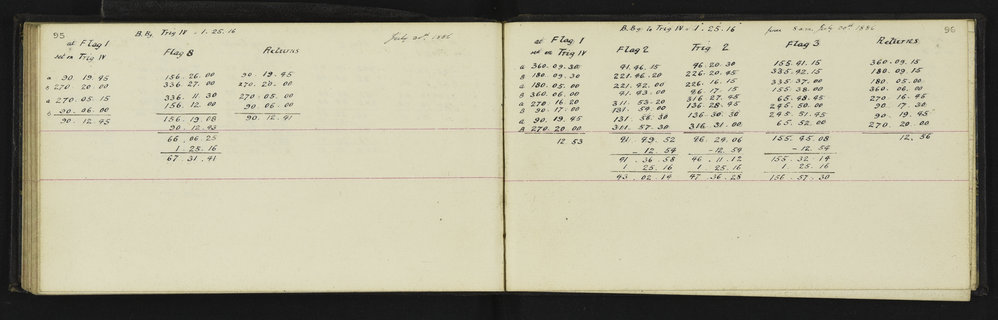 95
B.Bg. Trig IV = 1.25.16
July 20th 1886
at Flag 1
set on Trig IV
Flag B
Returns
A 90.19.45 156.26.00 90.19.45
B 270.20.00 336.27.00 270.20.00
A 270.05.15 336.11.30 270.05.00
B 90.06.00 156.12.00 90.06.00
90.12.45 156.19.08 90.12.41
90.12.43
66.06.25
1.25.16
67.31.41
96
B.Bg. to Trig IV = 1.25.16
from 8 a.m. July 20th 1886
at Flag 1
set on Trig IV
Flag 2
Trig 2
Flag 3
Returns
A 360.09.30 41.46.15 46.20.30 155.41.15 360.09.15
B 180.09.30 221.46.20 226.20.45 335.42.15 180.09.15
A 180.05.00 221.42.00 226.16.15 335.37.00 180.05.00
B 360.06.00 41.43.00 46.17.15 155.38.00 360.06.00
A 270.16.20 311.53.20 316.27.45 65.48.45 270.16.45
B 90.17.00 131.54.00 136.28.45 245.50.00 90.17.30
A 90.19.45 131.56.30 136.30.30 245.51.45 90.19.45
B 270.20.00 311.57.30 316.31.00 65.52.00 270.20.00
12.53 41.49.52 46.24.06 155.45.08 12.56
- 12.54 - 12.54 - 12.54
41.36.58 46.11.12 155.32.14
1.25.16 1.25.16 1.25.16
43.02.14 47.36.28 156.57.30